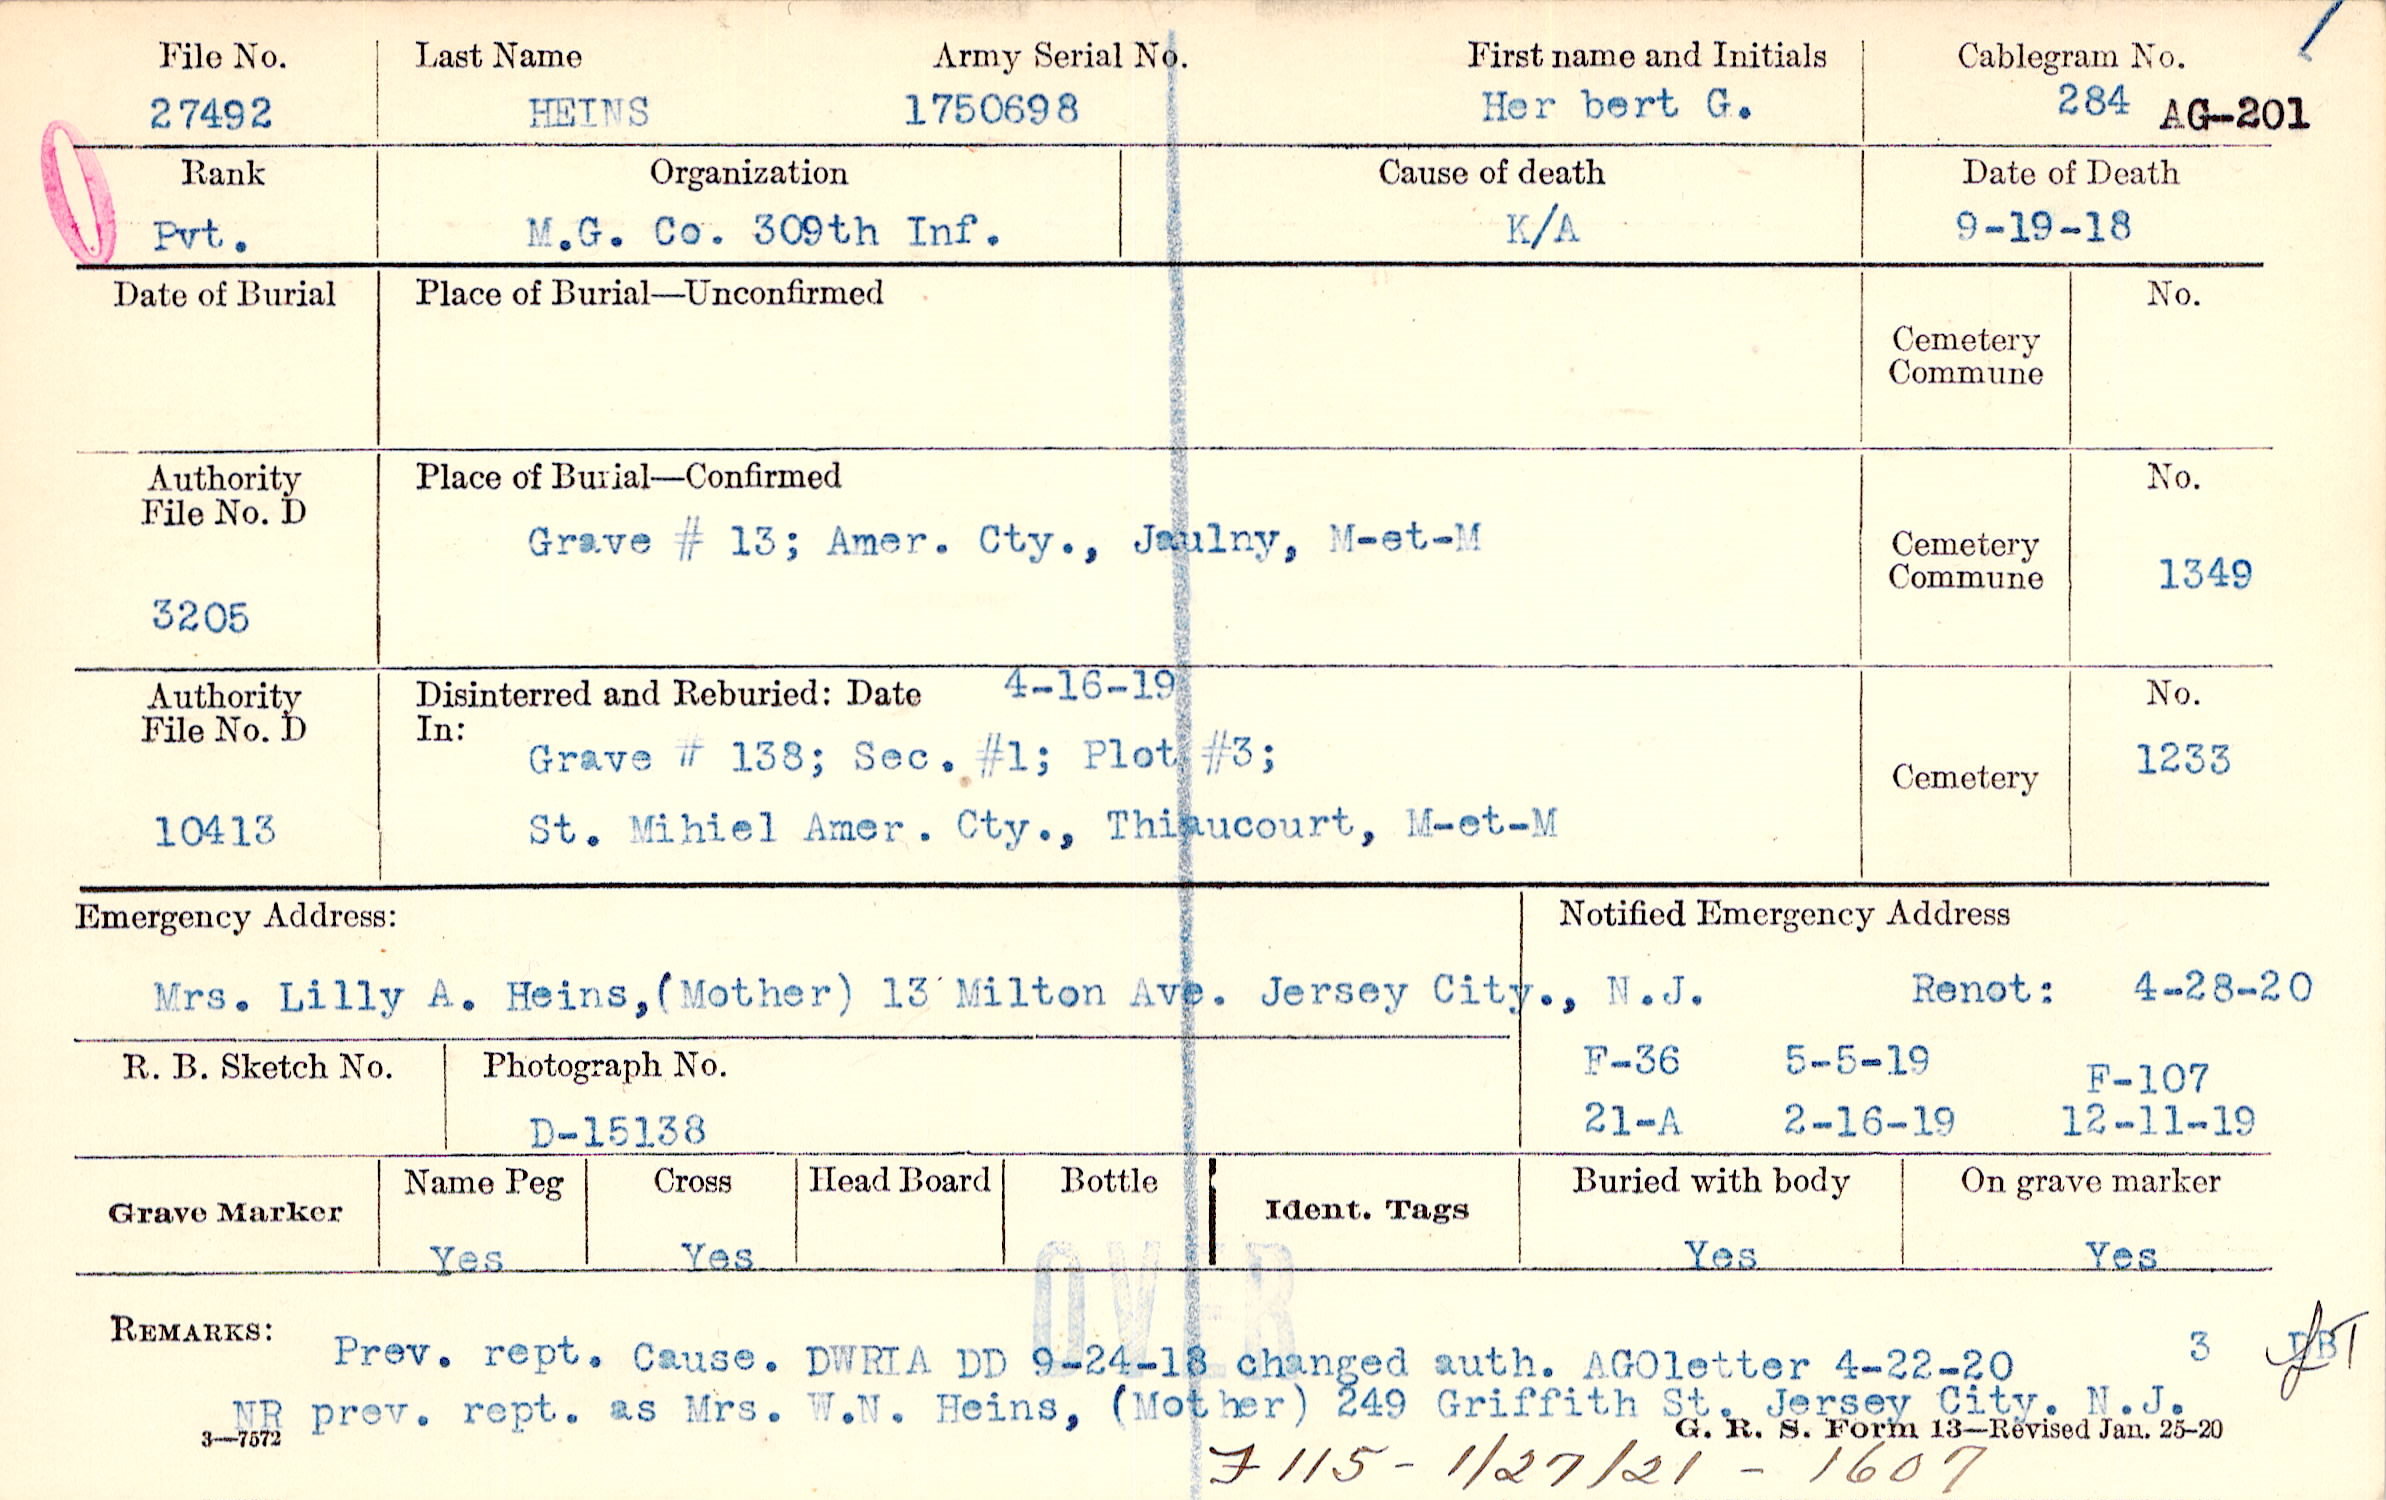 File No. Last Name Army Serial No. First name and Initials Cablegram No.
27492 HEINS 1750698 Her bert G. 284 AG-201
Rank Organization Cause of death Date of Death
Pvt. M.G. Co. 309th Inf. K/A 9-19-18
Date of Burial Place of Burial—Unconfirmed No.
Cemetery
Commune
Authority Place of Burial—Confirmed No.
File No. D
Grave # 13; Amer. Cty., Jaulny, M-et-M
Cemetery
Commune 1349
3205
Authority Disinterred and Reburied: Date 4-16-19 No.
File No. D In:
Grave # 138; Sec. #1; Plot #3; 1233
Cemetery
10413 St. Mihiel Amer. Cty., Thiaucourt, M-et-M
Emergency Address: Notified Emergency Address
Mrs. Lilly A. Heins,(Mother) 13 Milton Ave. Jersey City., N.J. Renot: 4-28-20
R. B. Sketch No. Photograph No. F-36 5-5-19 F-107
D-15138 21-A 2-16-19 12-11-19
Name Peg Cross Head Board Bottle Buried with body On grave marker
Grave Marker Ident. Tags
Yes Yes Yes Yes
OVER
REMARKS:
Prev. rept. Cause. DWRIA DD 9-24-18 changed auth. AGOletter 4-22-20 3
NR prev. rept. as Mrs. W.N. Heins, (Mother) 249 Griffith St. Jersey City. N.J.
3—7572 G. R. S. Form 13—Revised Jan. 25-20
F 115 - 1/27/21 - 1607